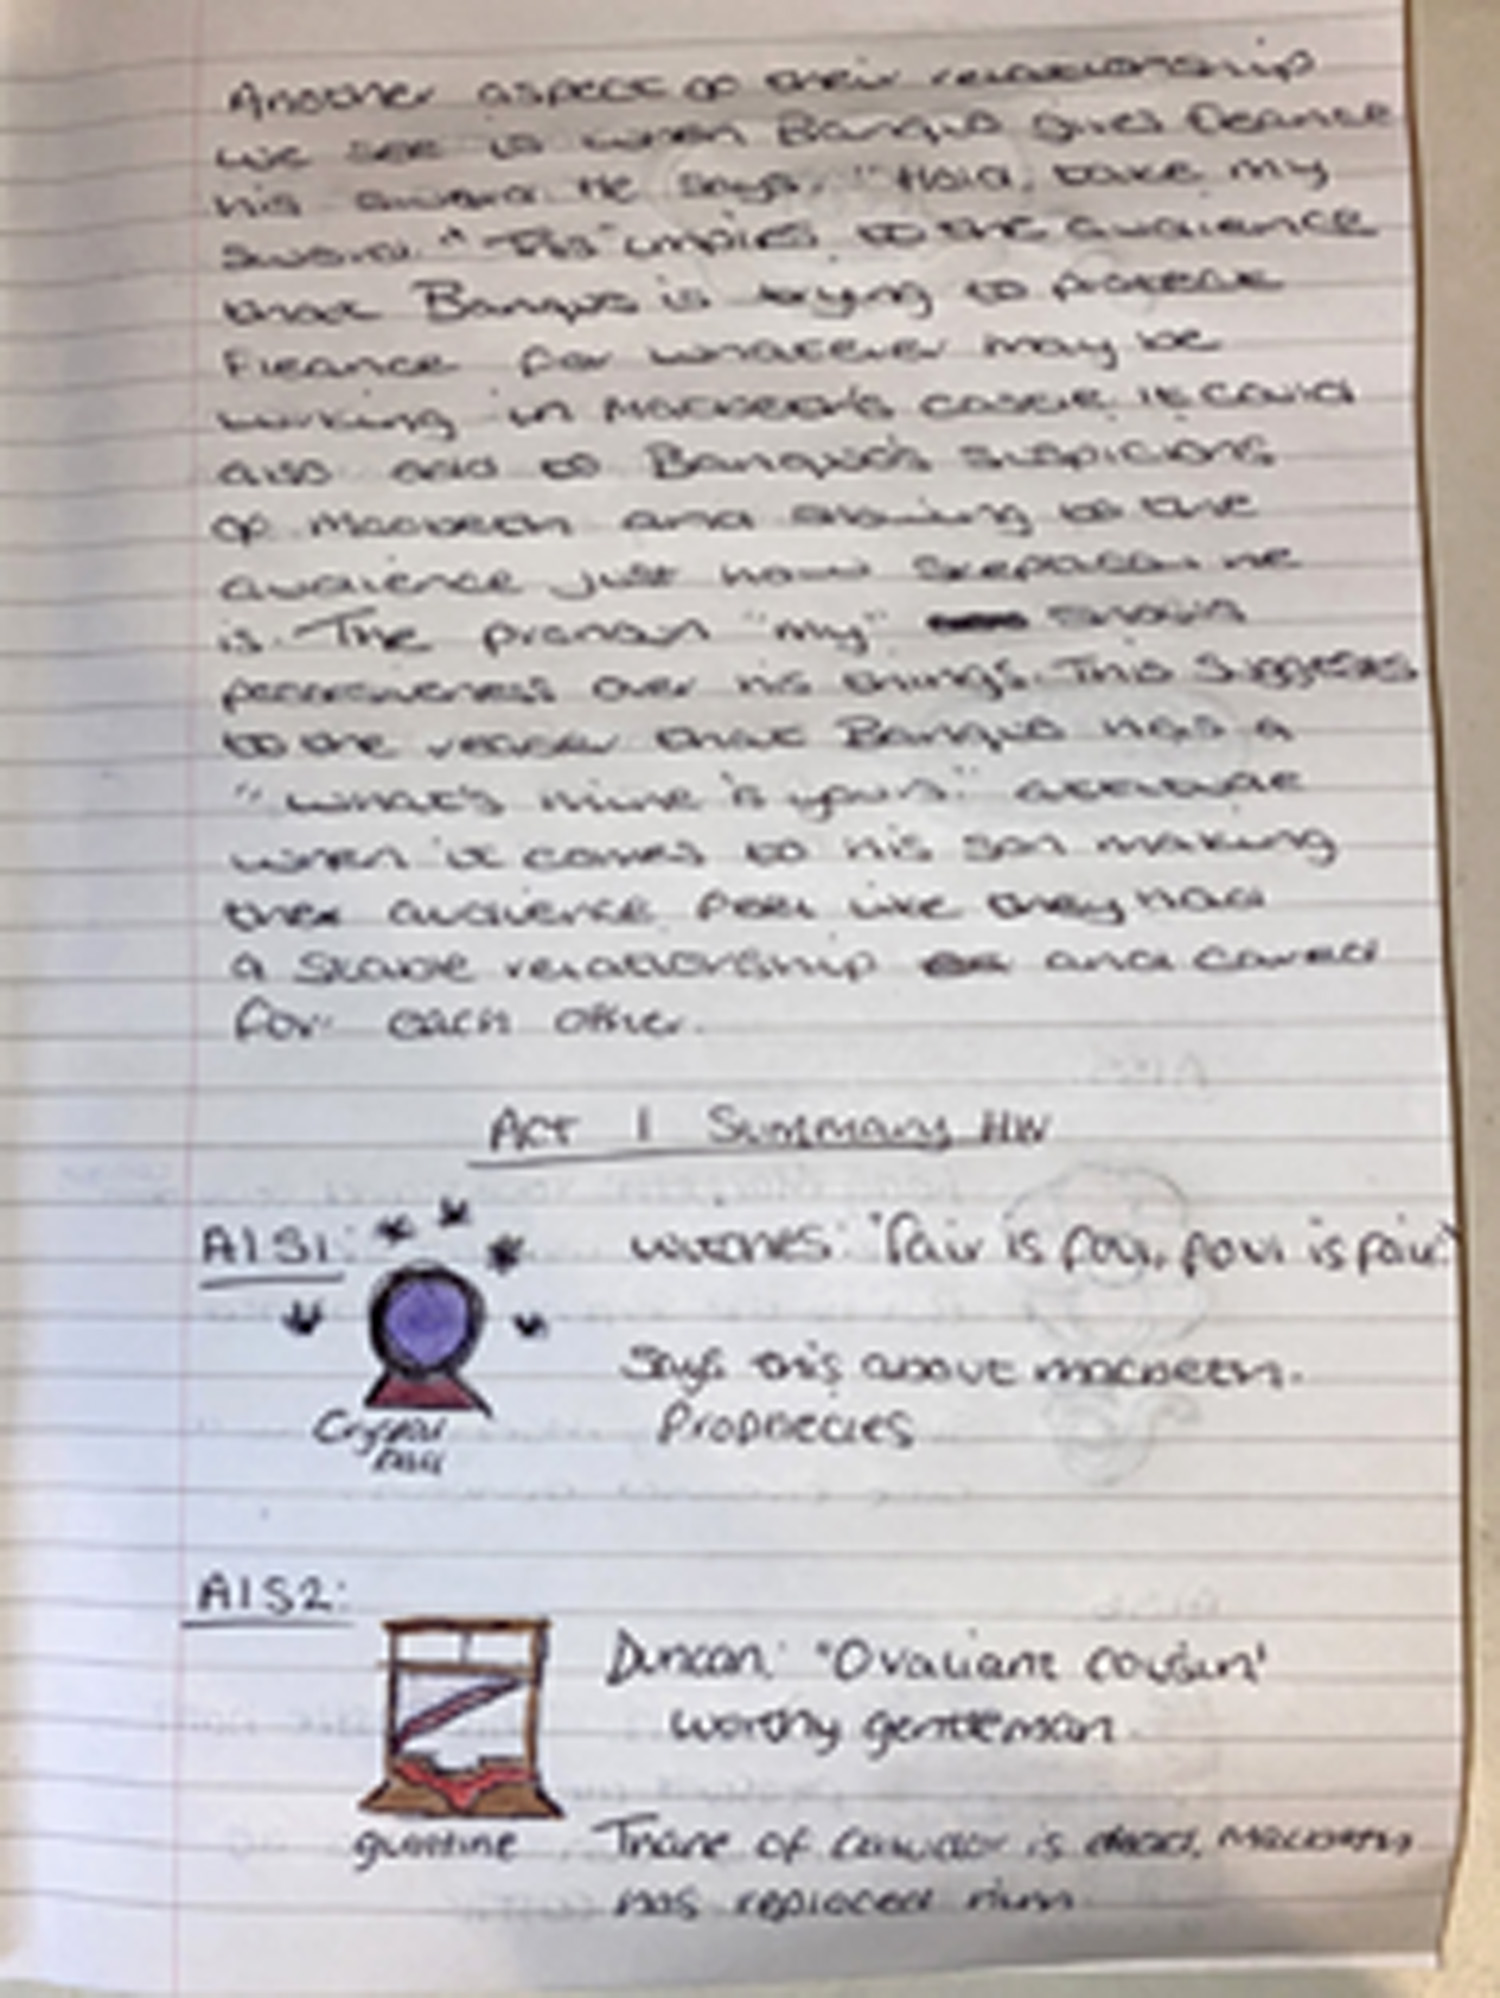 Another aspect of their relationship
we see is when Banquo gives fleance
his sword. He says, "Hold, take my
sword." This implies to the audience
that Banquo is trying to protect
Fleance for whatever may be
lurking in Macbeth's castle. It could
also add to Banquo's suspicions
of Macbeth and showing to the
audience just how skeptical he
is. The pronoun "my" shows
possessiveness over his things. This suggests
to the reader that Banquo has a
"what's mine is yours." attitude
when it comes to his son making
the audience feel like they had
a stable relationship and cared
for each other.
Act 1 Summary HW
A1S1: witches: "fair is foul, foul is fair"
Says this about macbeth.
Crystal Prophecies
ball
A1S2:
Duncan: "O valiant cousin'
worthy gentleman.
Thane of Cawdor is dead, Macbeth
has replaced